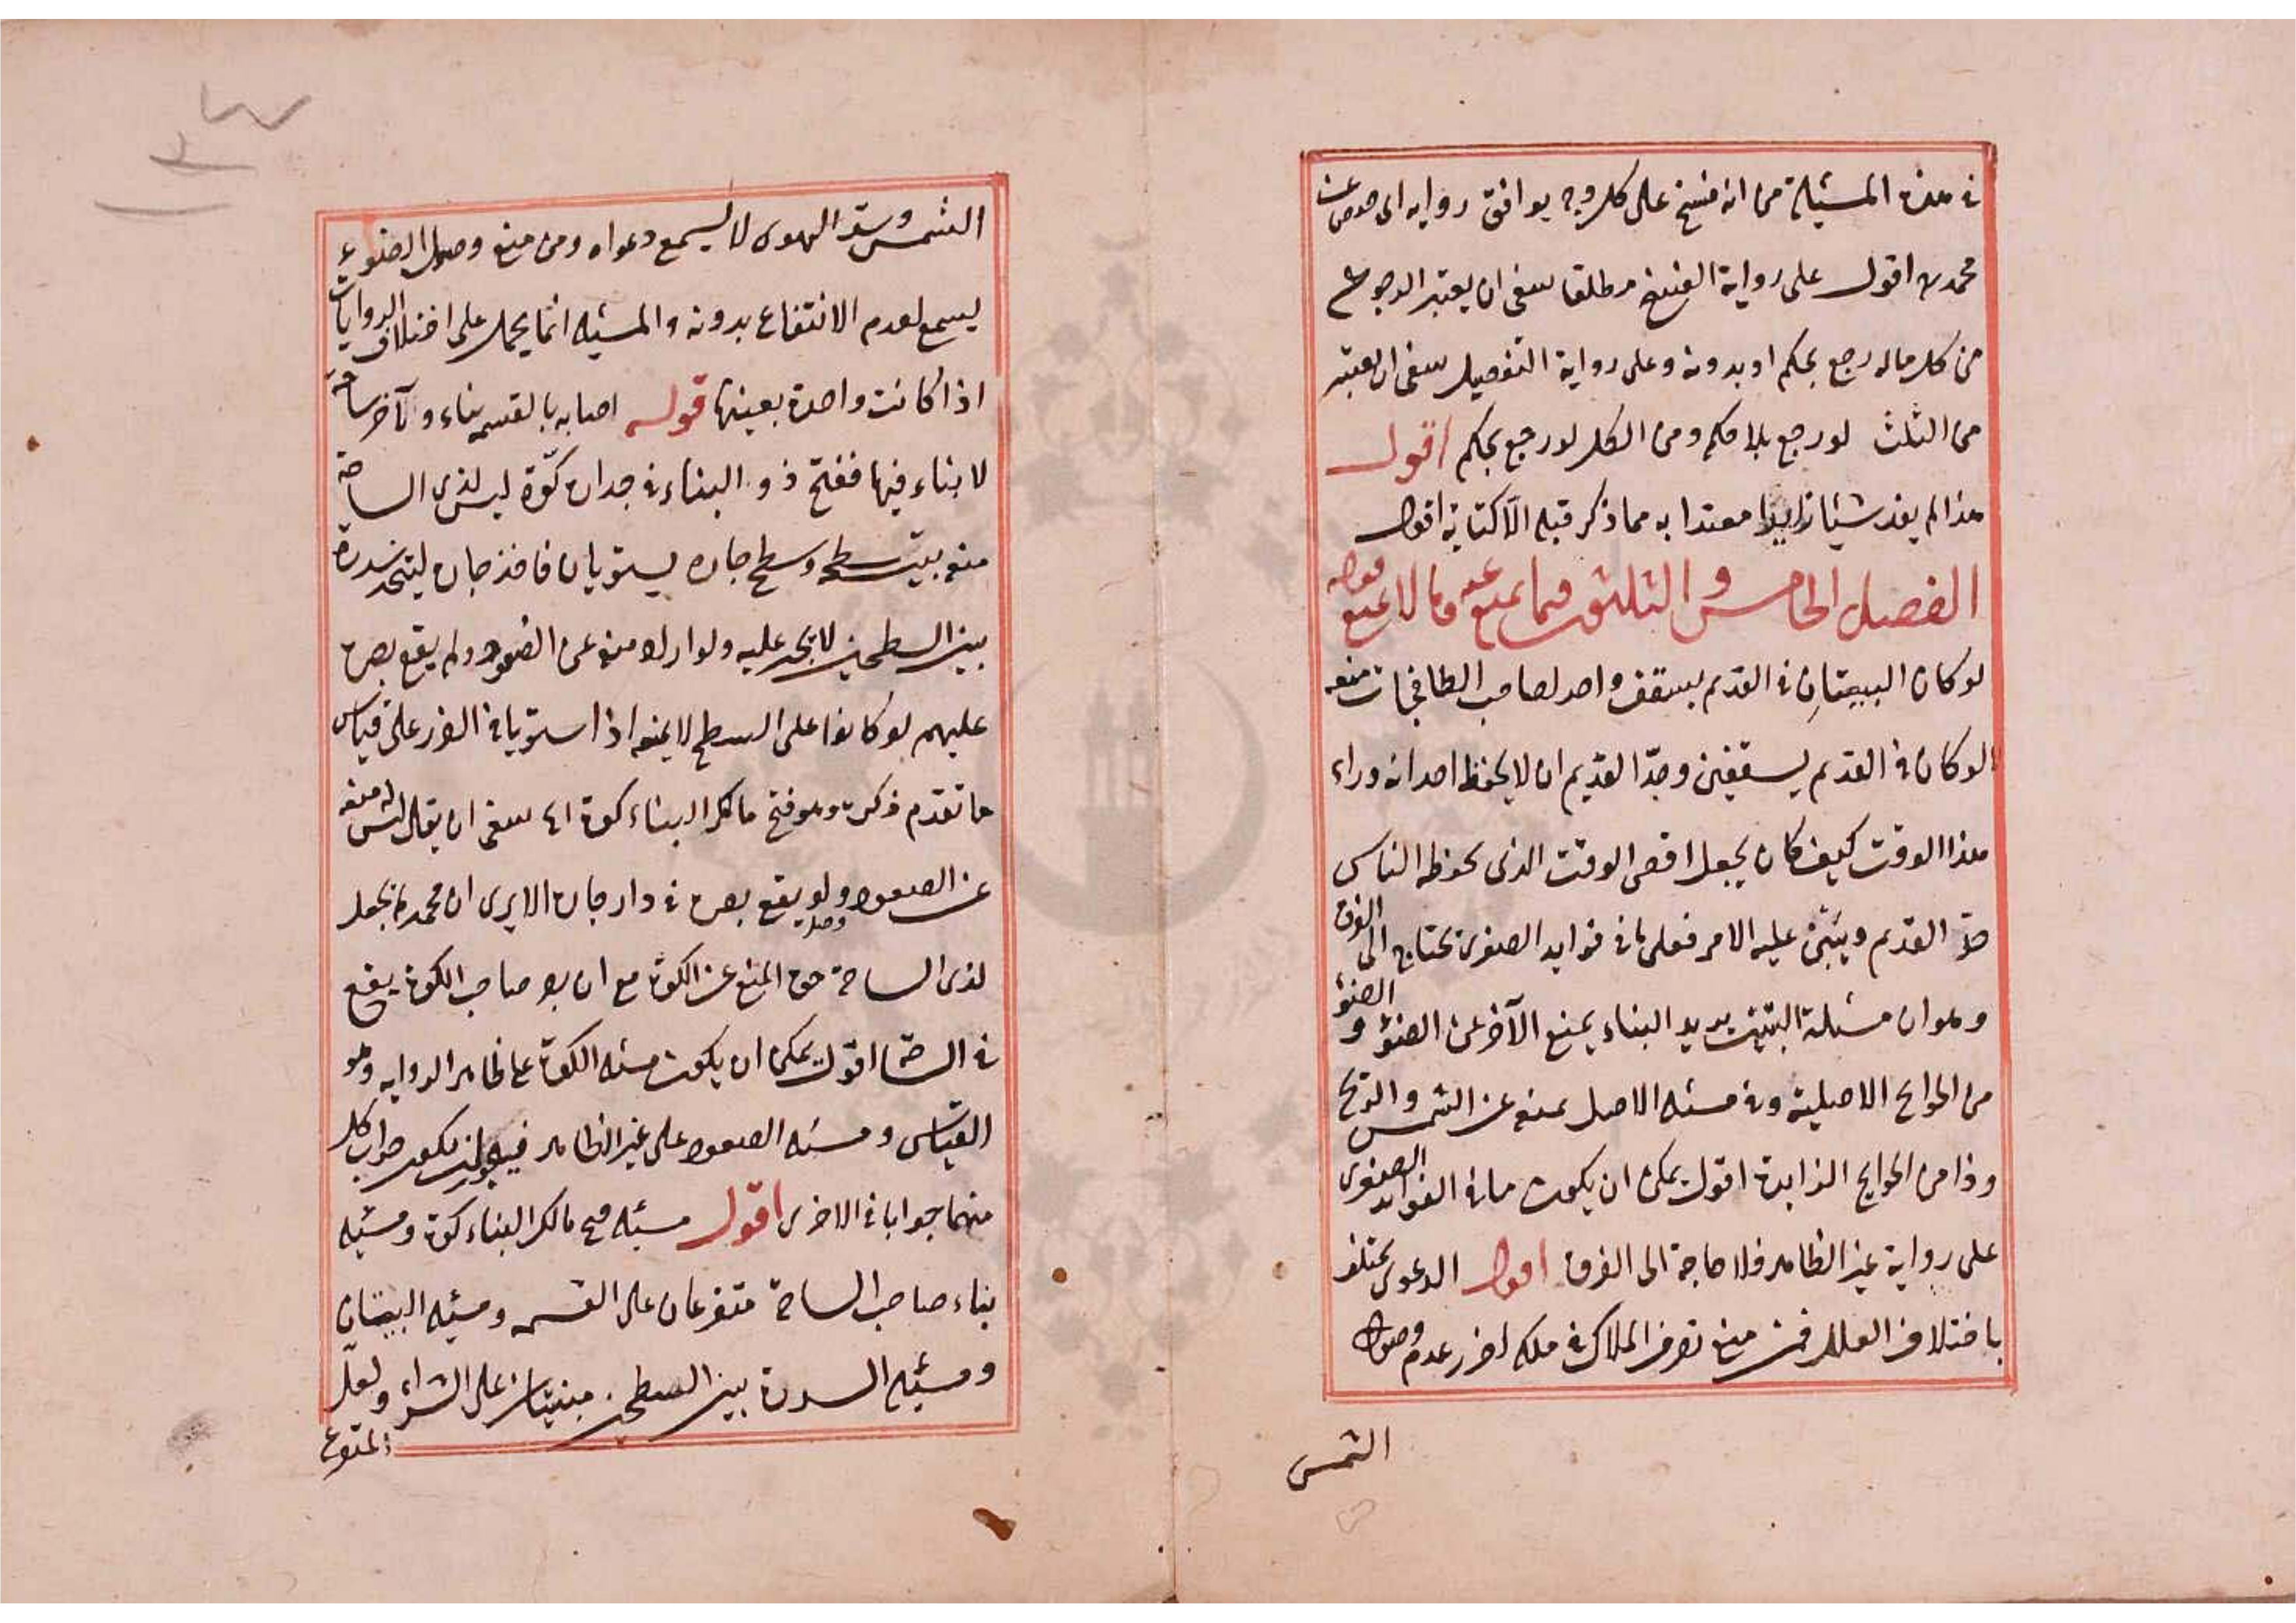 في هذه المسئلة من انه فسخ على كل وجه يوافق رواية ابى حفص عن
محمد رح اقول على رواية الفسخ مطلقا ينبغى ان يعتبر الرجوع
من كل ماله رجع بحكم او بدونه وعلى رواية التفصيل ينبغى ان يعتبر
من الثلث لو رجع بلا حكم ومن الكل لو رجع بحكم اقول
هذا لم يفد شيئا زايدا معتدا به مما ذكر قبله الا كتابة اقول
الفصل الخامس والثلثون فيما يمنع عنه وما لا يمنع قوله
لو كان البيتان في القديم بسقف واحد لصاحب الطاقجات منعه
لو كان في القديم بسقفين وحد القديم ان لا يحفظ اقرانه وراء
هذا الوقت كيف كان يجعل اقصى الوقت الذى يحفظه الناس
حد القديم ويبتنى عليه الامر فعلى ما في فوايد الصغرى يحتاج الى الفرق
وهو ان مسئلة البيت يريد البناء يمنع الآخر عن الضوء والضوء
من الحوائج الاصلية وفي مسئله الاصل يمنعه عن الشمس والريح
وذا من الحوايج الزايدة اقول يمكن ان يكون ما في الفوايد الصغرى
على رواية غير الظاهر فلا حاجة الى الفرق اقول الدعوى تختلف
باختلاف العلل فمن منع تصرف الملاك في ملكه لضرر عدم وصول
الشمس
الشمس وسد الهوى لا يسمع دعواه ومن منع وصول الضوء
يسمع لعدم الانتفاع بدونه والمسئله انما يحمل على اختلاف الروايات
اذا كانت واحدة بعينها قوله اصابه بالقسمه بناء والآخر ساحة
لا بناء فيها ففتح ذو البناء في جداره كوة ليس لذى الساحة
منعه بيت سطحه وسطح جاره يستويان فاخذ جاره ليتخذ سدرة
بين السطحين لا يجبر عليه ولو اراد منعه عن الصعود ولم يقع بصره
عليهم لو كانوا على السطح لا يمنعه اذا استويا في الضرر على قياس
ما تقدم ذكره وهو فتح مالك البناء كوة ينبغى ان يقال ليس له منعه
عن الصعود ولو يقع بصره في دار جاره الا يرى ان محمدا لم يجعل
لذى الساحة حق المنع عن الكوة مع ان بصر صاحب الكوة يقع
في الساحة اقول يمكن ان يكون مسئله الكوة على ظاهر الروايه وهو
القياس ومسئله الصعود على غير الظاهر فيجوز ان يكون جواب كل
منهما جوابا في الاخرى اقول مسئله فتح مالك البناء كوة ومسئله
بناء صاحب الساحة متفرعان على القسمه ومسئله البيتان
ومسئله السدرة بين السطحين مبنيتان على الشراء ولعل